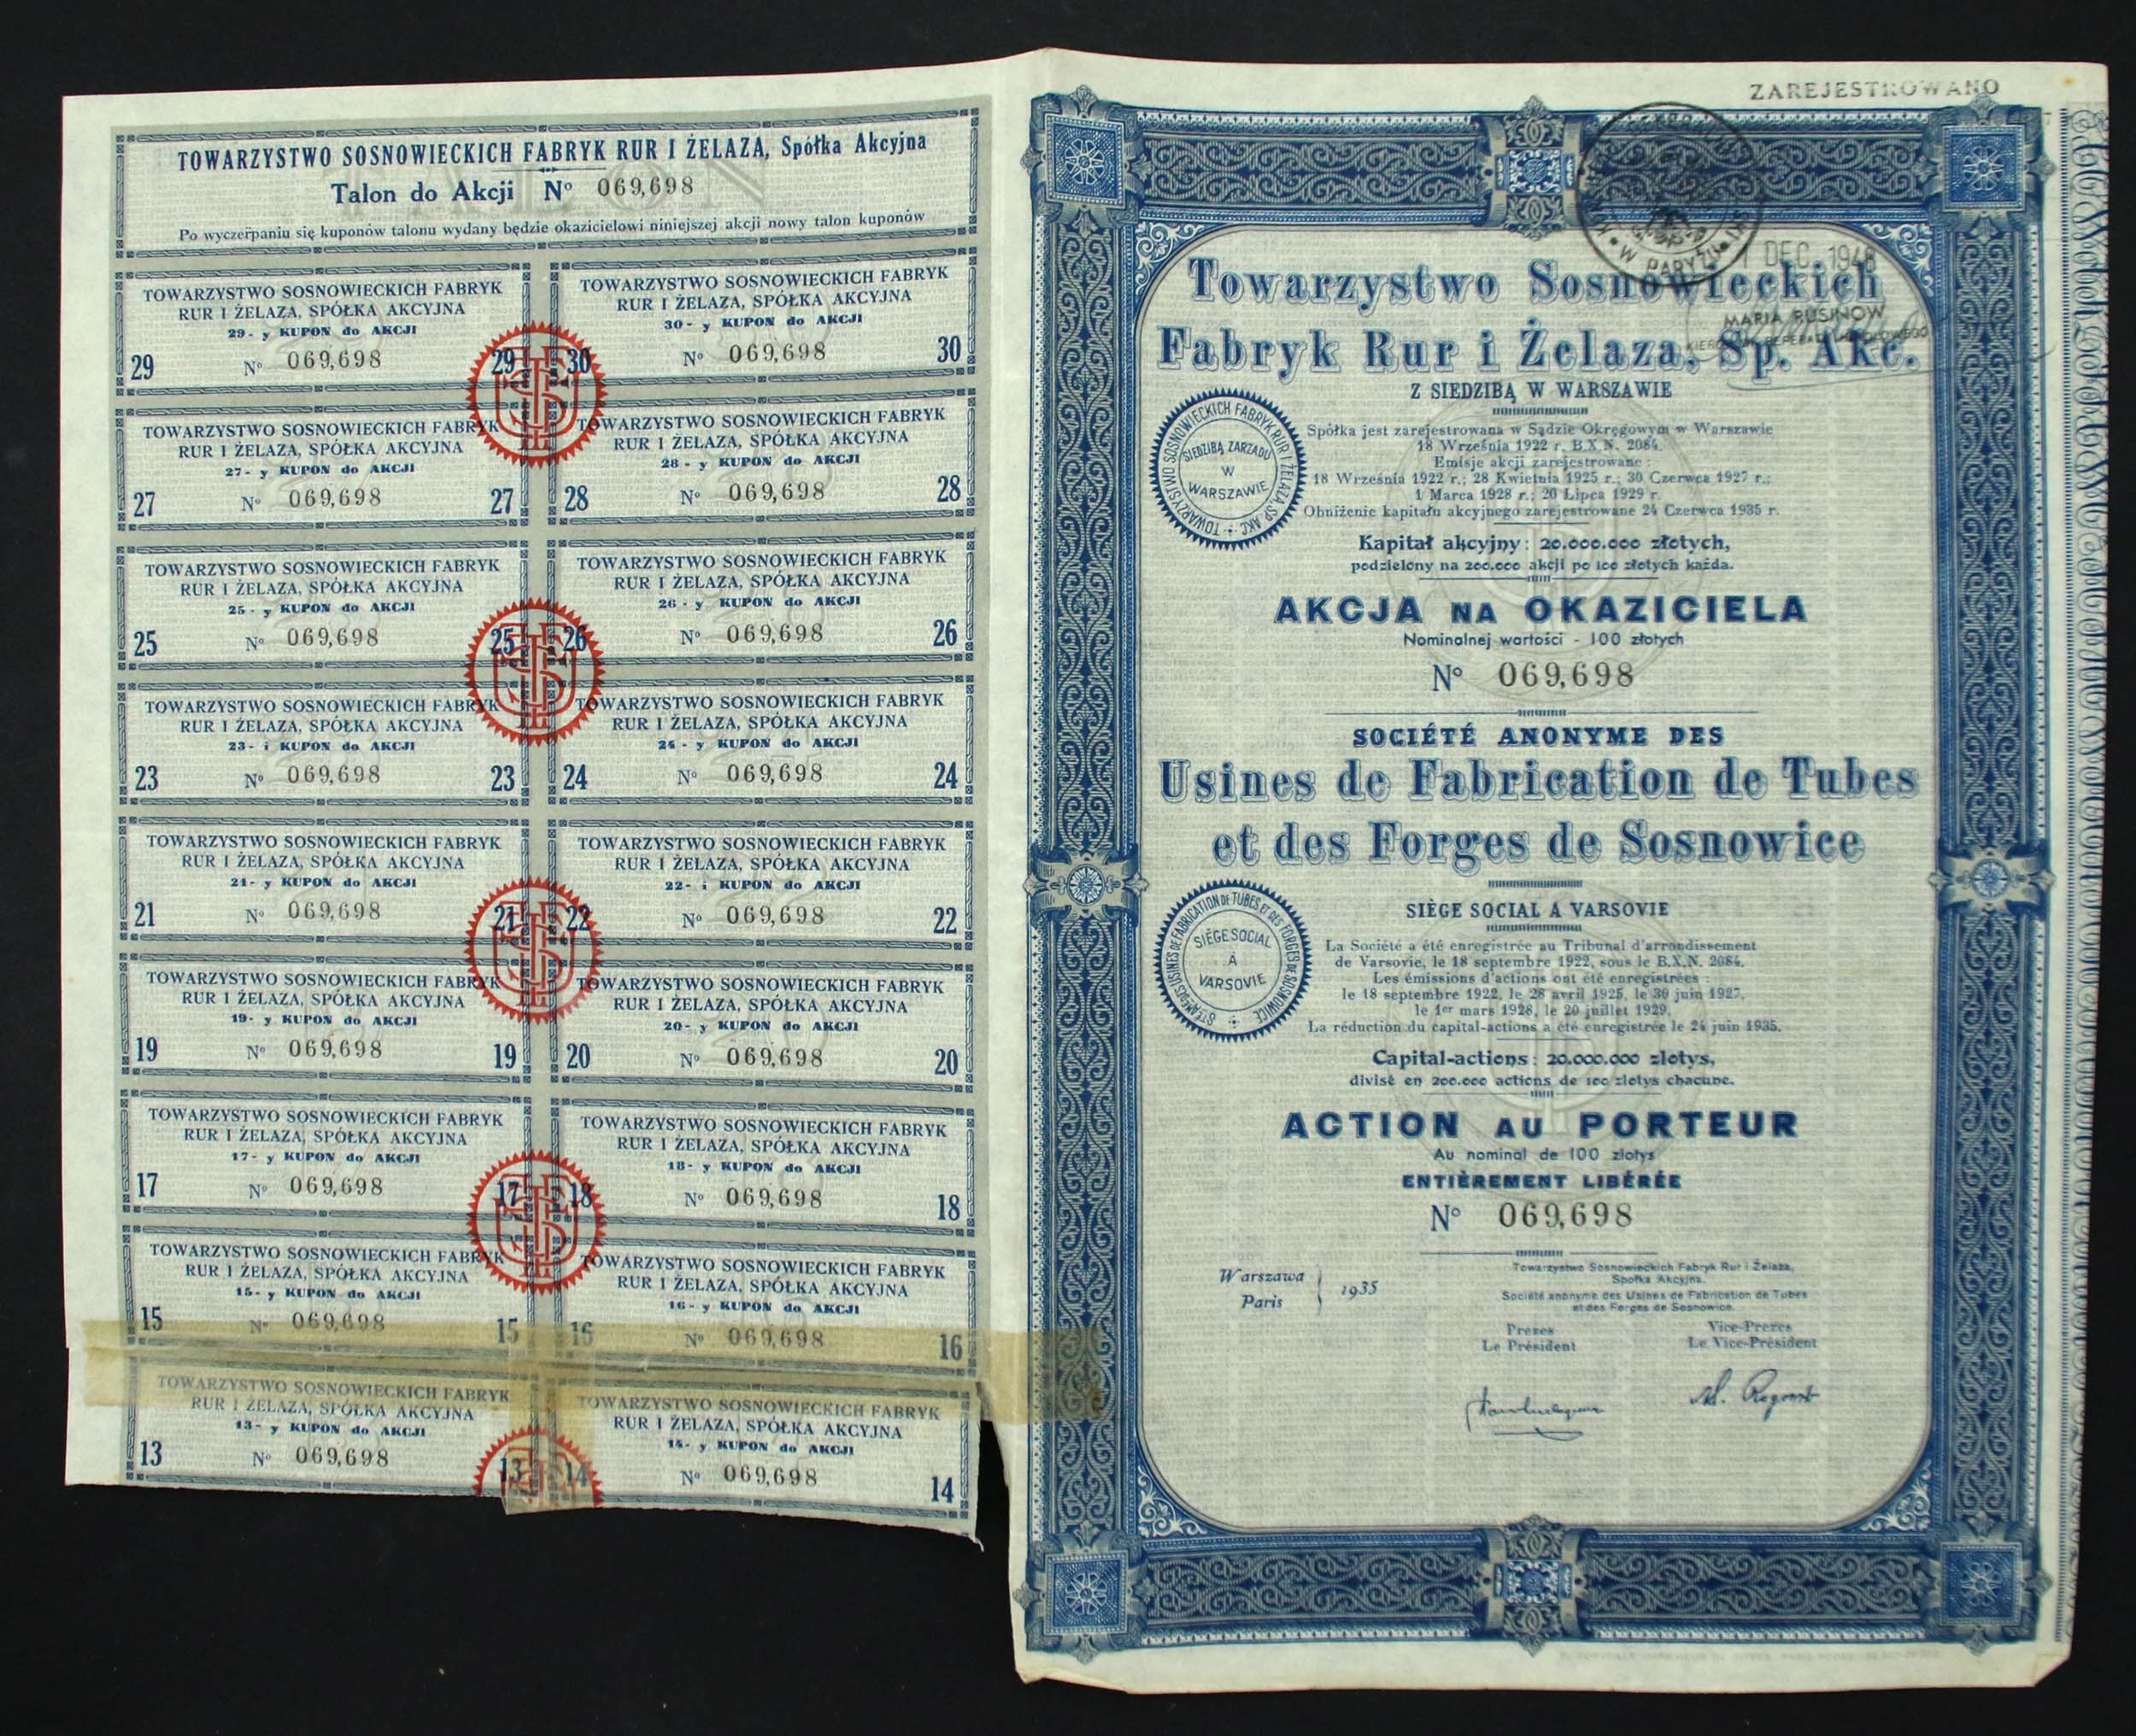 TOWARZYSTWO SOSNOWIECKICH FABRYK RUR I ŻELAZA, Spółka Akcyjna
Talon do Akcji Nº 069,698
Po wyczerpaniu się kuponów talonu wydany będzie okazicielowi niniejszej akcji nowy talon kuponów
TOWARZYSTWO SOSNOWIECKICH FABRYK
RUR I ŻELAZA, SPÓŁKA AKCYJNA
29-y KUPON do AKCJI
29 Nº 069,698 29
TOWARZYSTWO SOSNOWIECKICH FABRYK
RUR I ŻELAZA, SPÓŁKA AKCYJNA
30-y KUPON do AKCJI
30 Nº 069,698 30
TOWARZYSTWO SOSNOWIECKICH FABRYK
RUR I ŻELAZA, SPÓŁKA AKCYJNA
27-y KUPON do AKCJI
27 Nº 069,698 27
TOWARZYSTWO SOSNOWIECKICH FABRYK
RUR I ŻELAZA, SPÓŁKA AKCYJNA
28-y KUPON do AKCJI
28 Nº 069,698 28
TOWARZYSTWO SOSNOWIECKICH FABRYK
RUR I ŻELAZA, SPÓŁKA AKCYJNA
25-y KUPON do AKCJI
25 Nº 069,698 25
TOWARZYSTWO SOSNOWIECKICH FABRYK
RUR I ŻELAZA, SPÓŁKA AKCYJNA
26-y KUPON do AKCJI
26 Nº 069,698 26
TOWARZYSTWO SOSNOWIECKICH FABRYK
RUR I ŻELAZA, SPÓŁKA AKCYJNA
23-i KUPON do AKCJI
23 Nº 069,698 23
TOWARZYSTWO SOSNOWIECKICH FABRYK
RUR I ŻELAZA, SPÓŁKA AKCYJNA
24-y KUPON do AKCJI
24 Nº 069,698 24
TOWARZYSTWO SOSNOWIECKICH FABRYK
RUR I ŻELAZA, SPÓŁKA AKCYJNA
21-y KUPON do AKCJI
21 Nº 069,698 21
TOWARZYSTWO SOSNOWIECKICH FABRYK
RUR I ŻELAZA, SPÓŁKA AKCYJNA
22-i KUPON do AKCJI
22 Nº 069,698 22
TOWARZYSTWO SOSNOWIECKICH FABRYK
RUR I ŻELAZA, SPÓŁKA AKCYJNA
19-y KUPON do AKCJI
19 Nº 069,698 19
TOWARZYSTWO SOSNOWIECKICH FABRYK
RUR I ŻELAZA, SPÓŁKA AKCYJNA
20-y KUPON do AKCJI
20 Nº 069,698 20
TOWARZYSTWO SOSNOWIECKICH FABRYK
RUR I ŻELAZA, SPÓŁKA AKCYJNA
17-y KUPON do AKCJI
17 Nº 069,698 17
TOWARZYSTWO SOSNOWIECKICH FABRYK
RUR I ŻELAZA, SPÓŁKA AKCYJNA
18-y KUPON do AKCJI
18 Nº 069,698 18
TOWARZYSTWO SOSNOWIECKICH FABRYK
RUR I ŻELAZA, SPÓŁKA AKCYJNA
15-y KUPON do AKCJI
15 Nº 069,698 15
TOWARZYSTWO SOSNOWIECKICH FABRYK
RUR I ŻELAZA, SPÓŁKA AKCYJNA
16-y KUPON do AKCJI
16 Nº 069,698 16
TOWARZYSTWO SOSNOWIECKICH FABRYK
RUR I ŻELAZA, SPÓŁKA AKCYJNA
13-y KUPON do AKCJI
13 Nº 069,698 13
TOWARZYSTWO SOSNOWIECKICH FABRYK
RUR I ŻELAZA, SPÓŁKA AKCYJNA
14-y KUPON do AKCJI
14 Nº 069,698 14
ZAREJESTROWANO
W PARYŻU
DEC. 1946
MARIA RUSINOW
Towarzystwo Sosnowieckich
Fabryk Rur i Żelaza, Sp. Akc.
Z SIEDZIBĄ W WARSZAWIE
TOWARZYSTWO SOSNOWIECKICH FABRYK RUR I ŻELAZA, SP. AKC.
SIEDZIBA ZARZĄDU
W
WARSZAWIE
Spółka jest zarejestrowana w Sądzie Okręgowym w Warszawie
18 Września 1922 r. B.X.N. 2084.
Emisje akcji zarejestrowane :
18 Września 1922 r.; 28 Kwietnia 1925 r.; 30 Czerwca 1927 r.;
1 Marca 1928 r.; 20 Lipca 1929 r.
Obniżenie kapitału akcyjnego zarejestrowane 24 Czerwca 1935 r.
Kapitał akcyjny : 20.000.000 złotych,
podzielony na 200.000 akcji po 100 złotych każda.
AKCJA NA OKAZICIELA
Nominalnej wartości - 100 złotych
Nº 069,698
SOCIÉTÉ ANONYME DES
Usines de Fabrication de Tubes
et des Forges de Sosnowice
SIÈGE SOCIAL A VARSOVIE
STÉ AN. DES USINES DE FABRICATION DE TUBES ET DES FORGES DE SOSNOWICE
SIÈGE SOCIAL
À
VARSOVIE
La Société a été enregistrée au Tribunal d'arrondissement
de Varsovie, le 18 septembre 1922, sous le B.X.N. 2084.
Les émissions d'actions ont été enregistrées :
le 18 septembre 1922, le 28 avril 1925, le 30 juin 1927,
le 1er mars 1928, le 20 juillet 1929.
La réduction du capital-actions a été enregistrée le 24 juin 1935.
Capital-actions : 20.000.000 zlotys,
divisé en 200.000 actions de 100 zlotys chacune.
ACTION AU PORTEUR
Au nominal de 100 zlotys
ENTIÈREMENT LIBÉRÉE
Nº 069,698
Warszawa
Paris
1935
Towarzystwo Sosnowieckich Fabryk Rur i Żelaza,
Spółka Akcyjna.
Société anonyme des Usines de Fabrication de Tubes
et des Forges de Sosnowice.
Prezes
Le Président
Vice-Prezes
Le Vice-Président